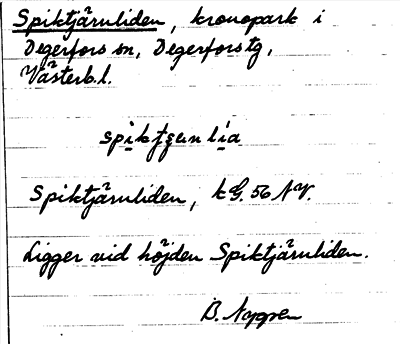 Spiktjärnliden, kronopark i
Degerfors sn, Degerforstg,
Västerb.l.
Spiktjärnliden, kG.56 NV.
Ligger vid höjden Spiktjärnliden.
B. Nygren